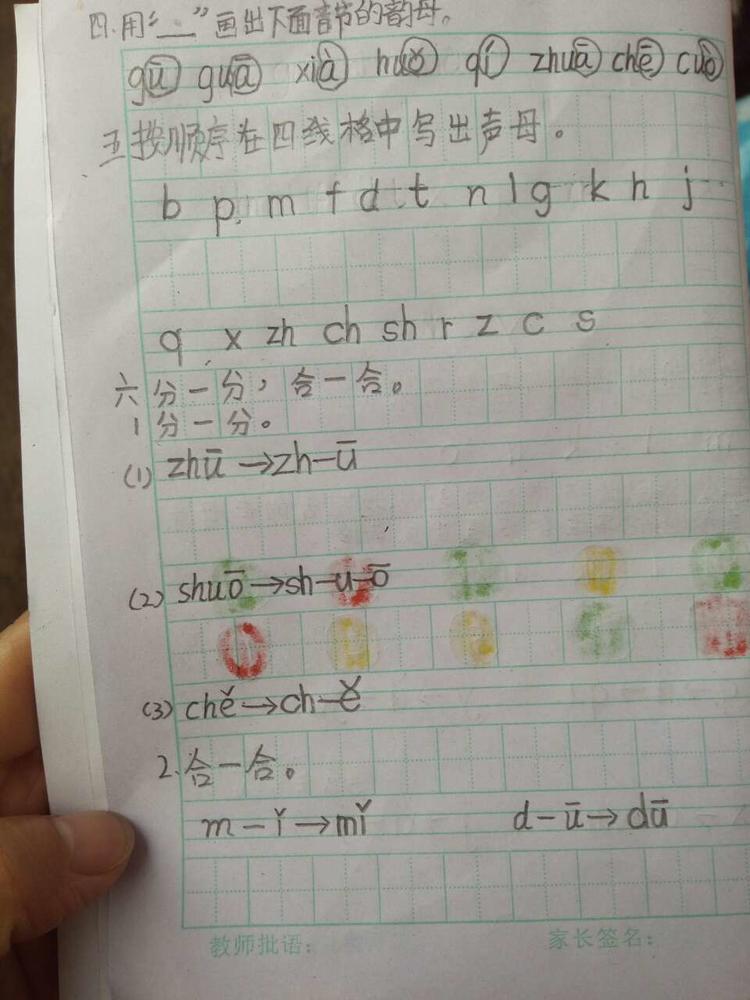 四.用“__”画出下面音节的韵母。
gū guā xià huǒ qí zhuā chē cuò
五按顺序在四线格中写出声母。
b p m f d t n l g k h j
q x zh ch sh r z c s
六分一分，合一合。
1分一分。
(1) zhū→zh-ū
(2) shuō→sh-u-ō
(3) chě→ch-ě
2.合一合。
m-ǐ→mǐ d-ū→dū
教师批语: 家长签名: